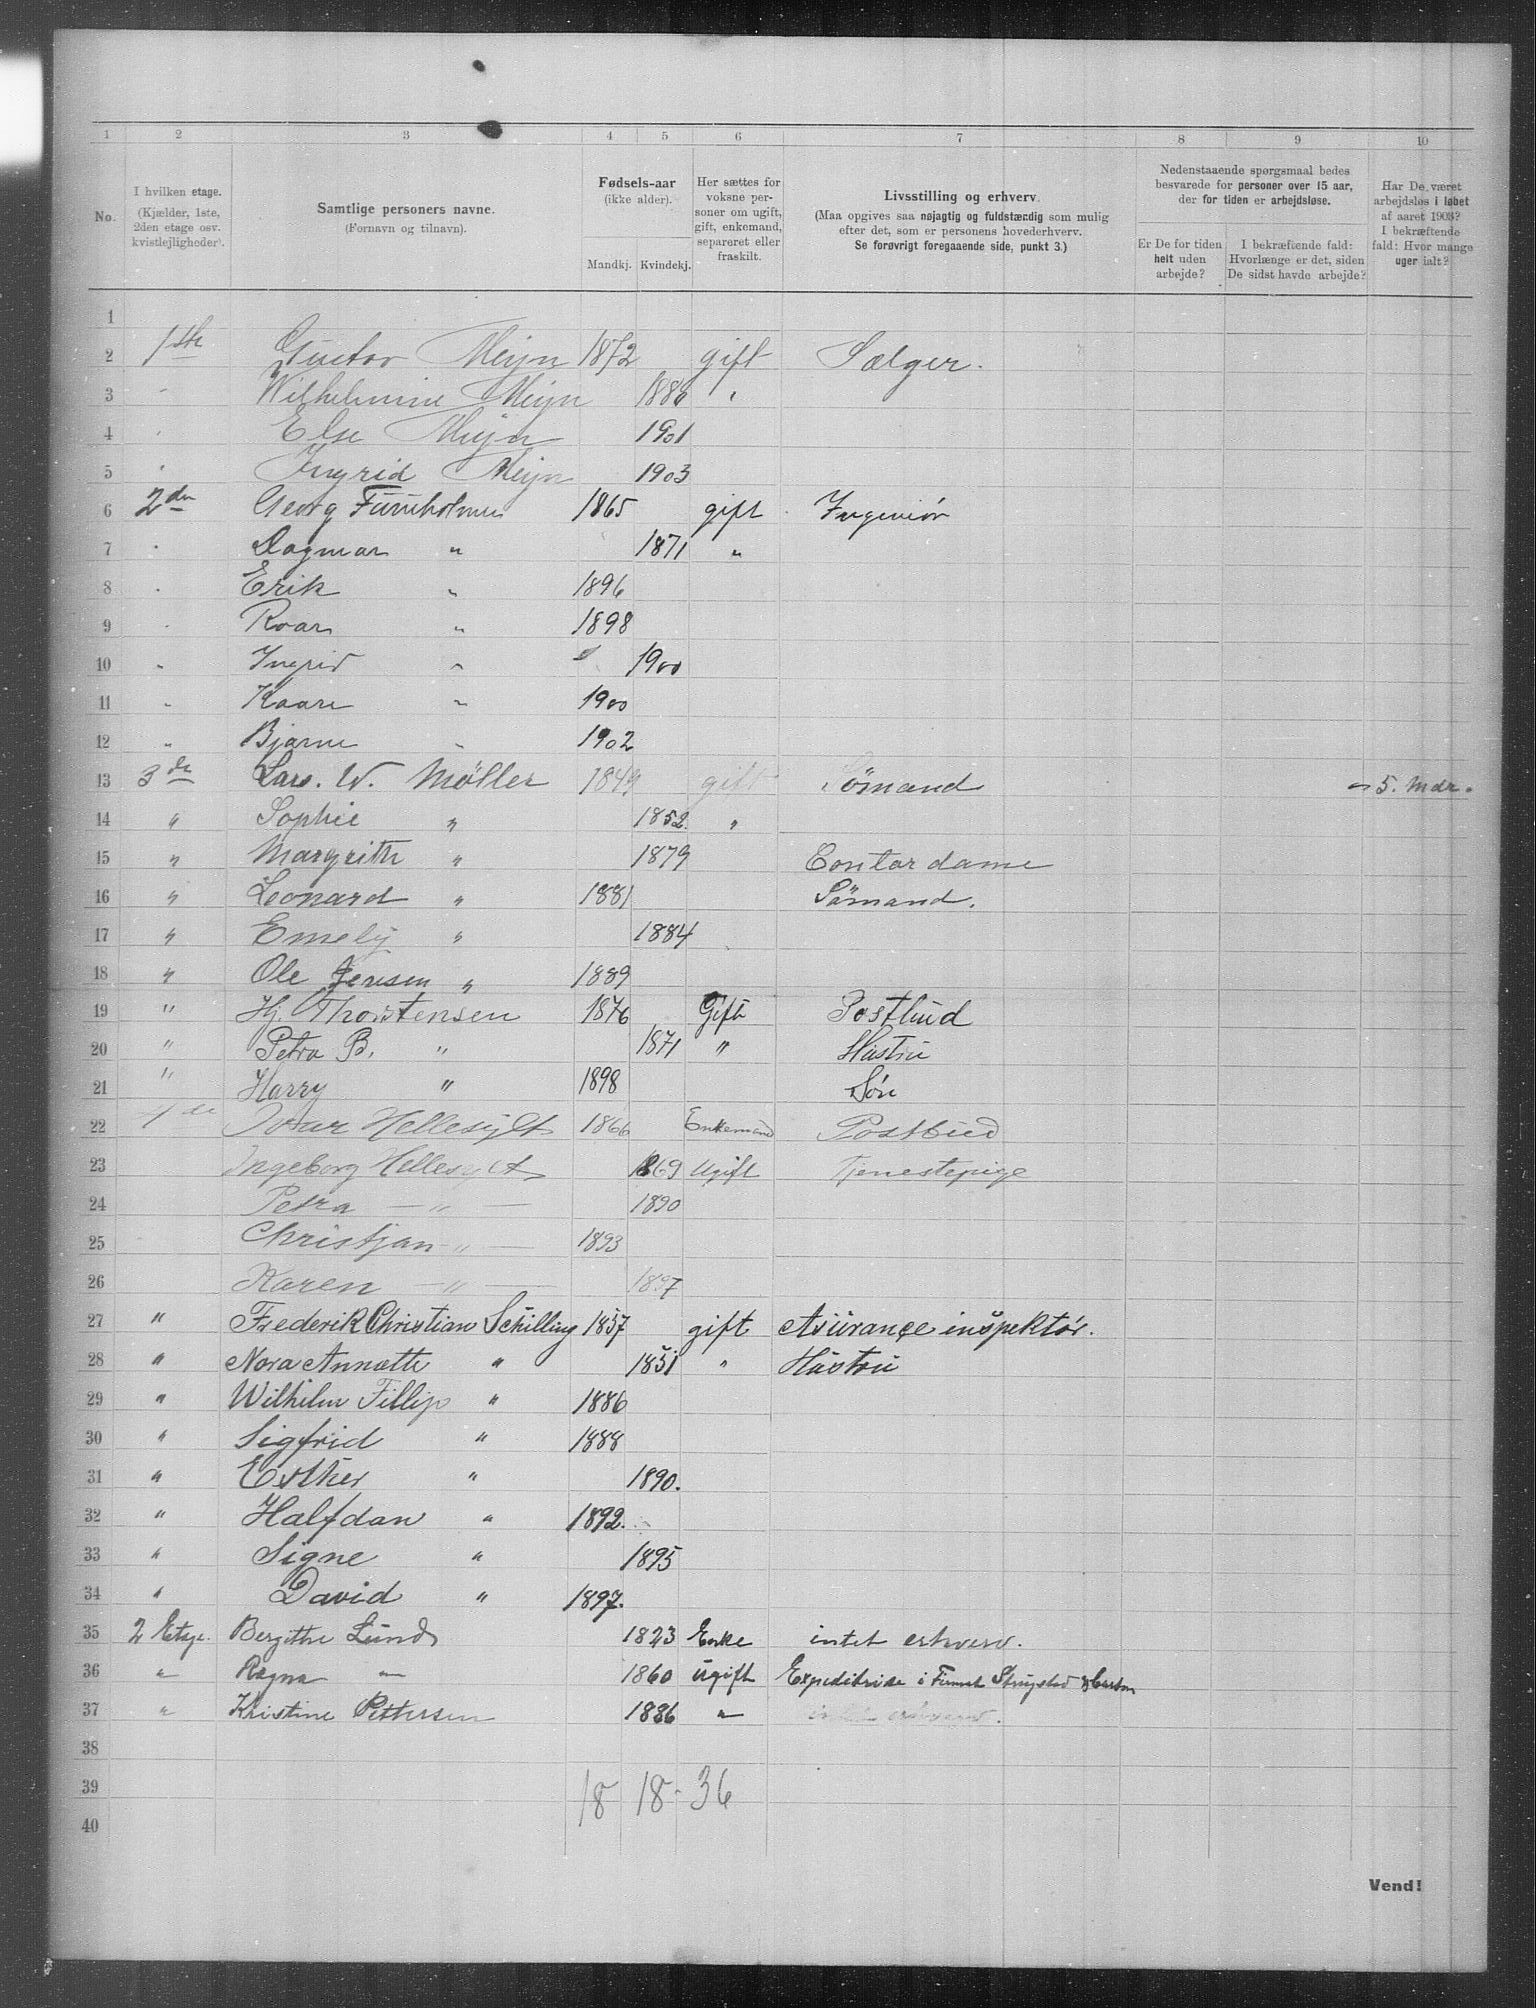 1 2 3 4 5 6 7 8 9 10
No.
I hvilken etage.
(Kjælder, 1ste,
2den etage osv.
kvistlejligheder).
Samtlige personers navne.
(Fornavn og tilnavn).
Fødsels-aar
(ikke alder).
Mandkj. Kvindekj.
Her sættes for
voksne per-
soner om ugift,
gift, enkemand,
separeret eller
fraskilt.
Livsstilling og erhverv.
(Maa opgives saa nøjagtig og fuldstændig som mulig
efter det, som er personens hovederhverv.
Se forøvrigt foregaaende side, punkt 3.)
Nedenstaaende spørgsmaal bedes
besvarede for personer over 15 aar,
der for tiden er arbejdsløse.
Er De for tiden
helt uden
arbejde?
I bekræftende fald:
Hvorlænge er det, siden
De sidst havde arbejde?
Har De været
arbejdsløs i løbet
af aaret 1903?
I bekræftende
fald: Hvor mange
uger ialt?
1
2 1ste Gustav Meijn 1872 gift Sælger.
3 " Wilhelmine Meijn 1886 "
4 " Else Meijn 1901
5 " Ingrid Meijn 1903
6 2den Georg Furuholmen 1865 gift Ingeniør
7 " Dagmar " 1871 "
8 " Erik " 1896
9 " Roar " 1898
10 " Ingrid " 1900
11 " Kaare " 1900
12 " Bjarne " 1902
13 3de Lars. W. Møller 1849 gift Sømand 5. mdr.
14 " Sophie " 1852. "
15 " Margrith " 1879 Contor dame
16 " Leonard " 1881 Sømand.
17 " Emely " 1884
18 " Ole Jensen " 1889
19 " Hj. Thorstensen 1876 Gift Postbud
20 " Petra B. " 1871 " Hustru
21 " Harry " 1898 Søn
22 Ivar Hellesylt 1866 Enkemand Postbud
23 Ingeborg Hellesylt 1869 Ugift Tjenestepige
24 Petra — " — 1890
25 Christjan — " — 1893
26 Karen — " — 1897
27 " Frederik Christian Schilling 1857 gift Asurance inspektør.
28 " Nora Annette " 1851 " Hustru
29 " Wilhelm Fillip " 1886
30 " Sigfrid " 1888
31 " Esther " 1890.
32 " Halfdan " 1892.
33 " Signe " 1895
34 " David " 1897.
35 2 Etage. Bergithe Lund 1823 Enke intet erhverv.
36 " Ragna " 1860 ugift Expeditrice i
37 " Kristine Pettersen 1886 " intet erhverv.
38
39 18 18 - 36
40
Vend!